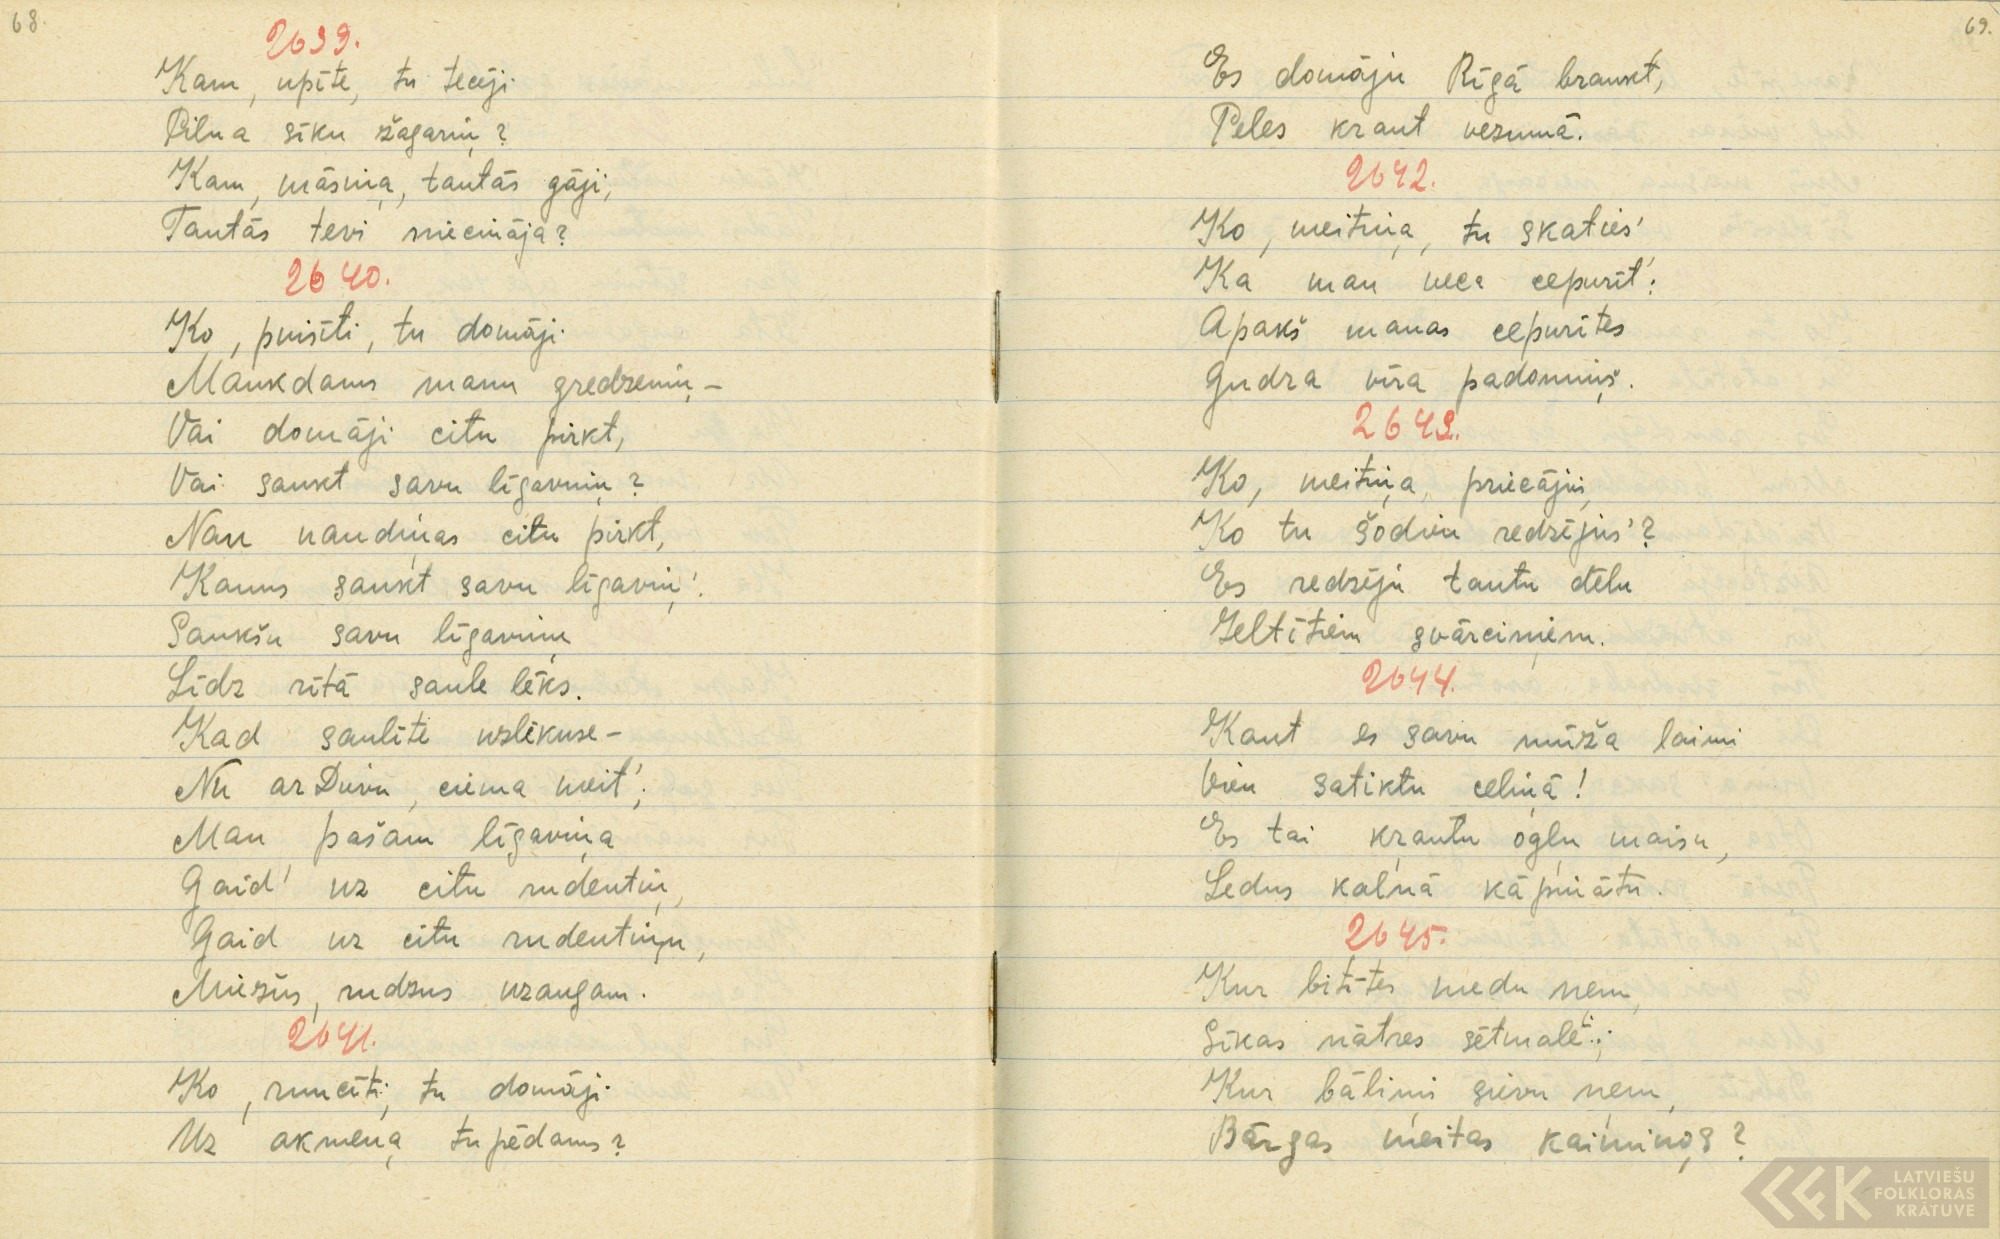 68.
2639.
Kam, upīte, tu tecēji
Pilna sīku žagariņ?
Kam, māsiņa, tautās gāji,
Tautās tevi niecināja?
2640.
Ko, puisīti, tu domāji
Maukdams manu gredzeniņ, –
Vai domāji citu pirkt,
Vai saukt savu līgavniņ?
Nau naudiņas citu pirkt,
Kauns saukt savu līgaviņ'.
Saukšu savu līgaviņu
Līdz rītā saule lēks.
Kad saulīte uzlēkuse –
Nu ar Dievu, ciema meit';
Man pašam līgaviņa
Gaid' uz citu rudentiņ,
Gaid uz citu rudentiņu,
Miezīs, rudzus uzaugam.
2641.
Ko, runcīti, tu domāji
Uz akmeņa tupēdams?
69.
Es domāju Rīgā braukt,
Peles kraut vezumā.
2642.
Ko, meitiņa, tu skaties'
Ka man veca cepurīt';
Apakš manas cepurītes
Gudra vīra padomiņš.
2643.
Ko, meitiņa, priecājies,
Ko tu šodien redzējus'?
Es redzēju tautu dēlu
Zeltītiem svārciņiem.
2644.
Kaut es savu mūža laimi
Vien satiktu celiņā!
Es tai krautu ogļu maisu,
Ledus kalnā kāpinātu.
2645.
Kur bitītes medu ņem,
Sīkas nātres sētmalē;
Kur bāliņi sievu ņem,
Bārgas meitas kaimiņos?
LATVIEŠU
FOLKLORAS
KRĀTUVE